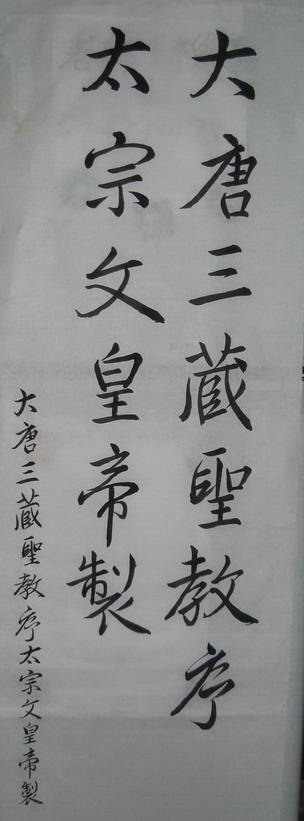 大唐三藏聖教序
太宗文皇帝製
大唐三藏聖教序太宗文皇帝製